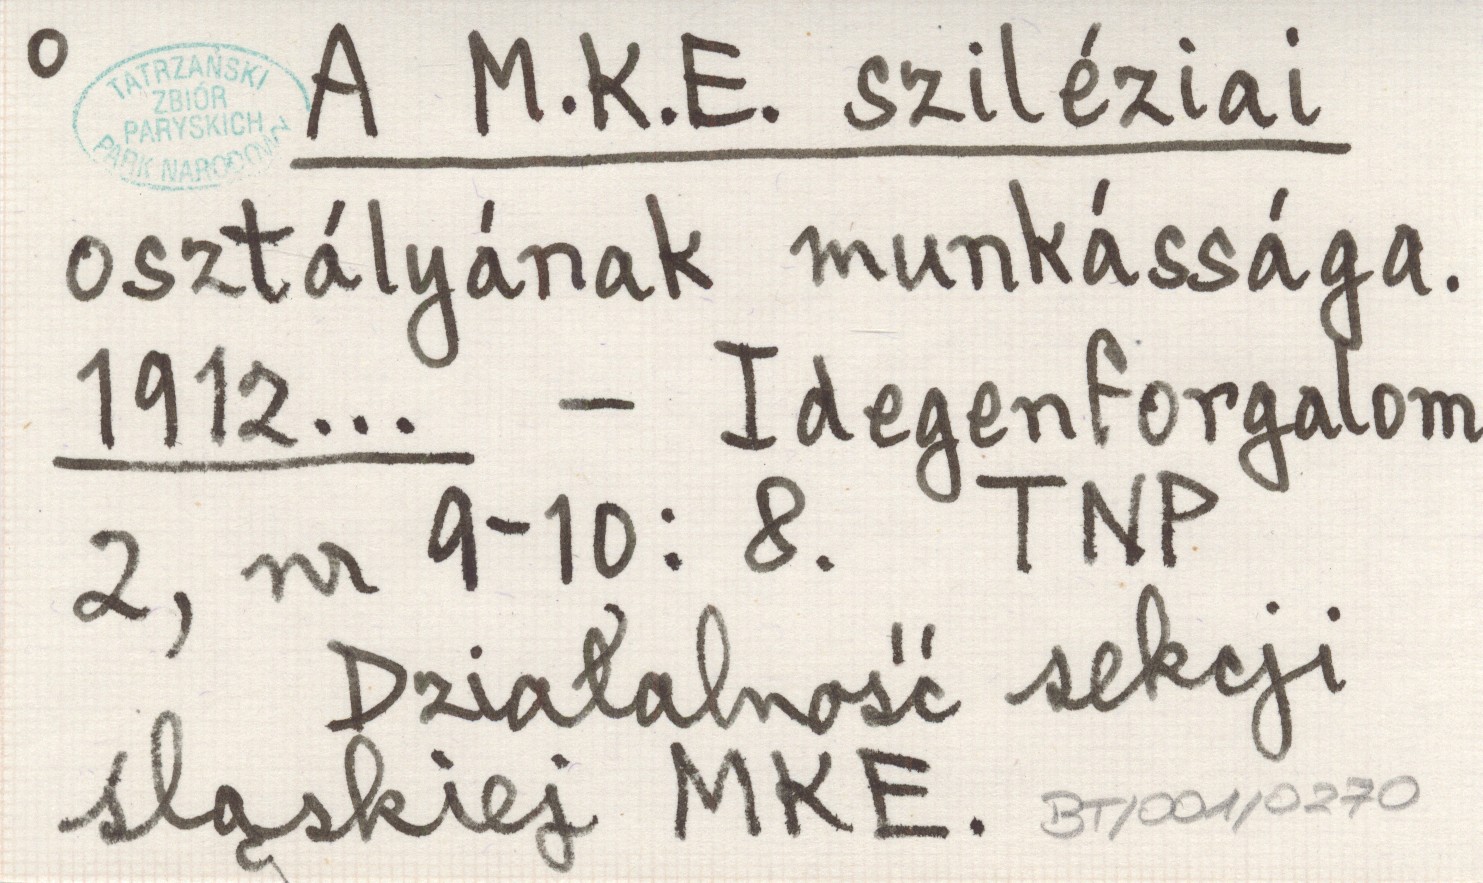 o
TATRZAŃSKI
ZBIÓR
PARYSKICH
PARK NARODOWY
A M.K.E. sziléziai
osztályának munkássága.
1912... – Idegenforgalom
2, nr 9-10: 8. TNP
Działalność sekcji
śląskiej MKE.
BT/001/0270